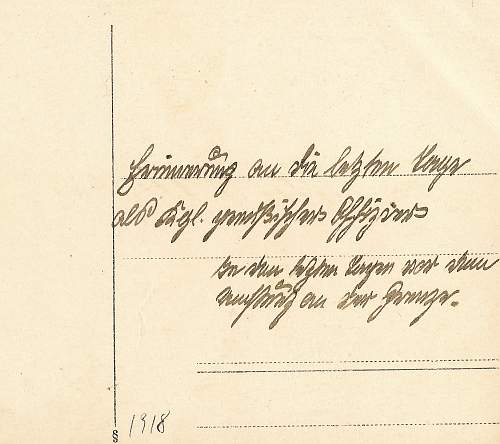 Erinnerung an die letzten Tage
als Kgl. preußischer Offizier
in den letzten Tagen vor dem
Umsturz an der Grenze.
§ 1918